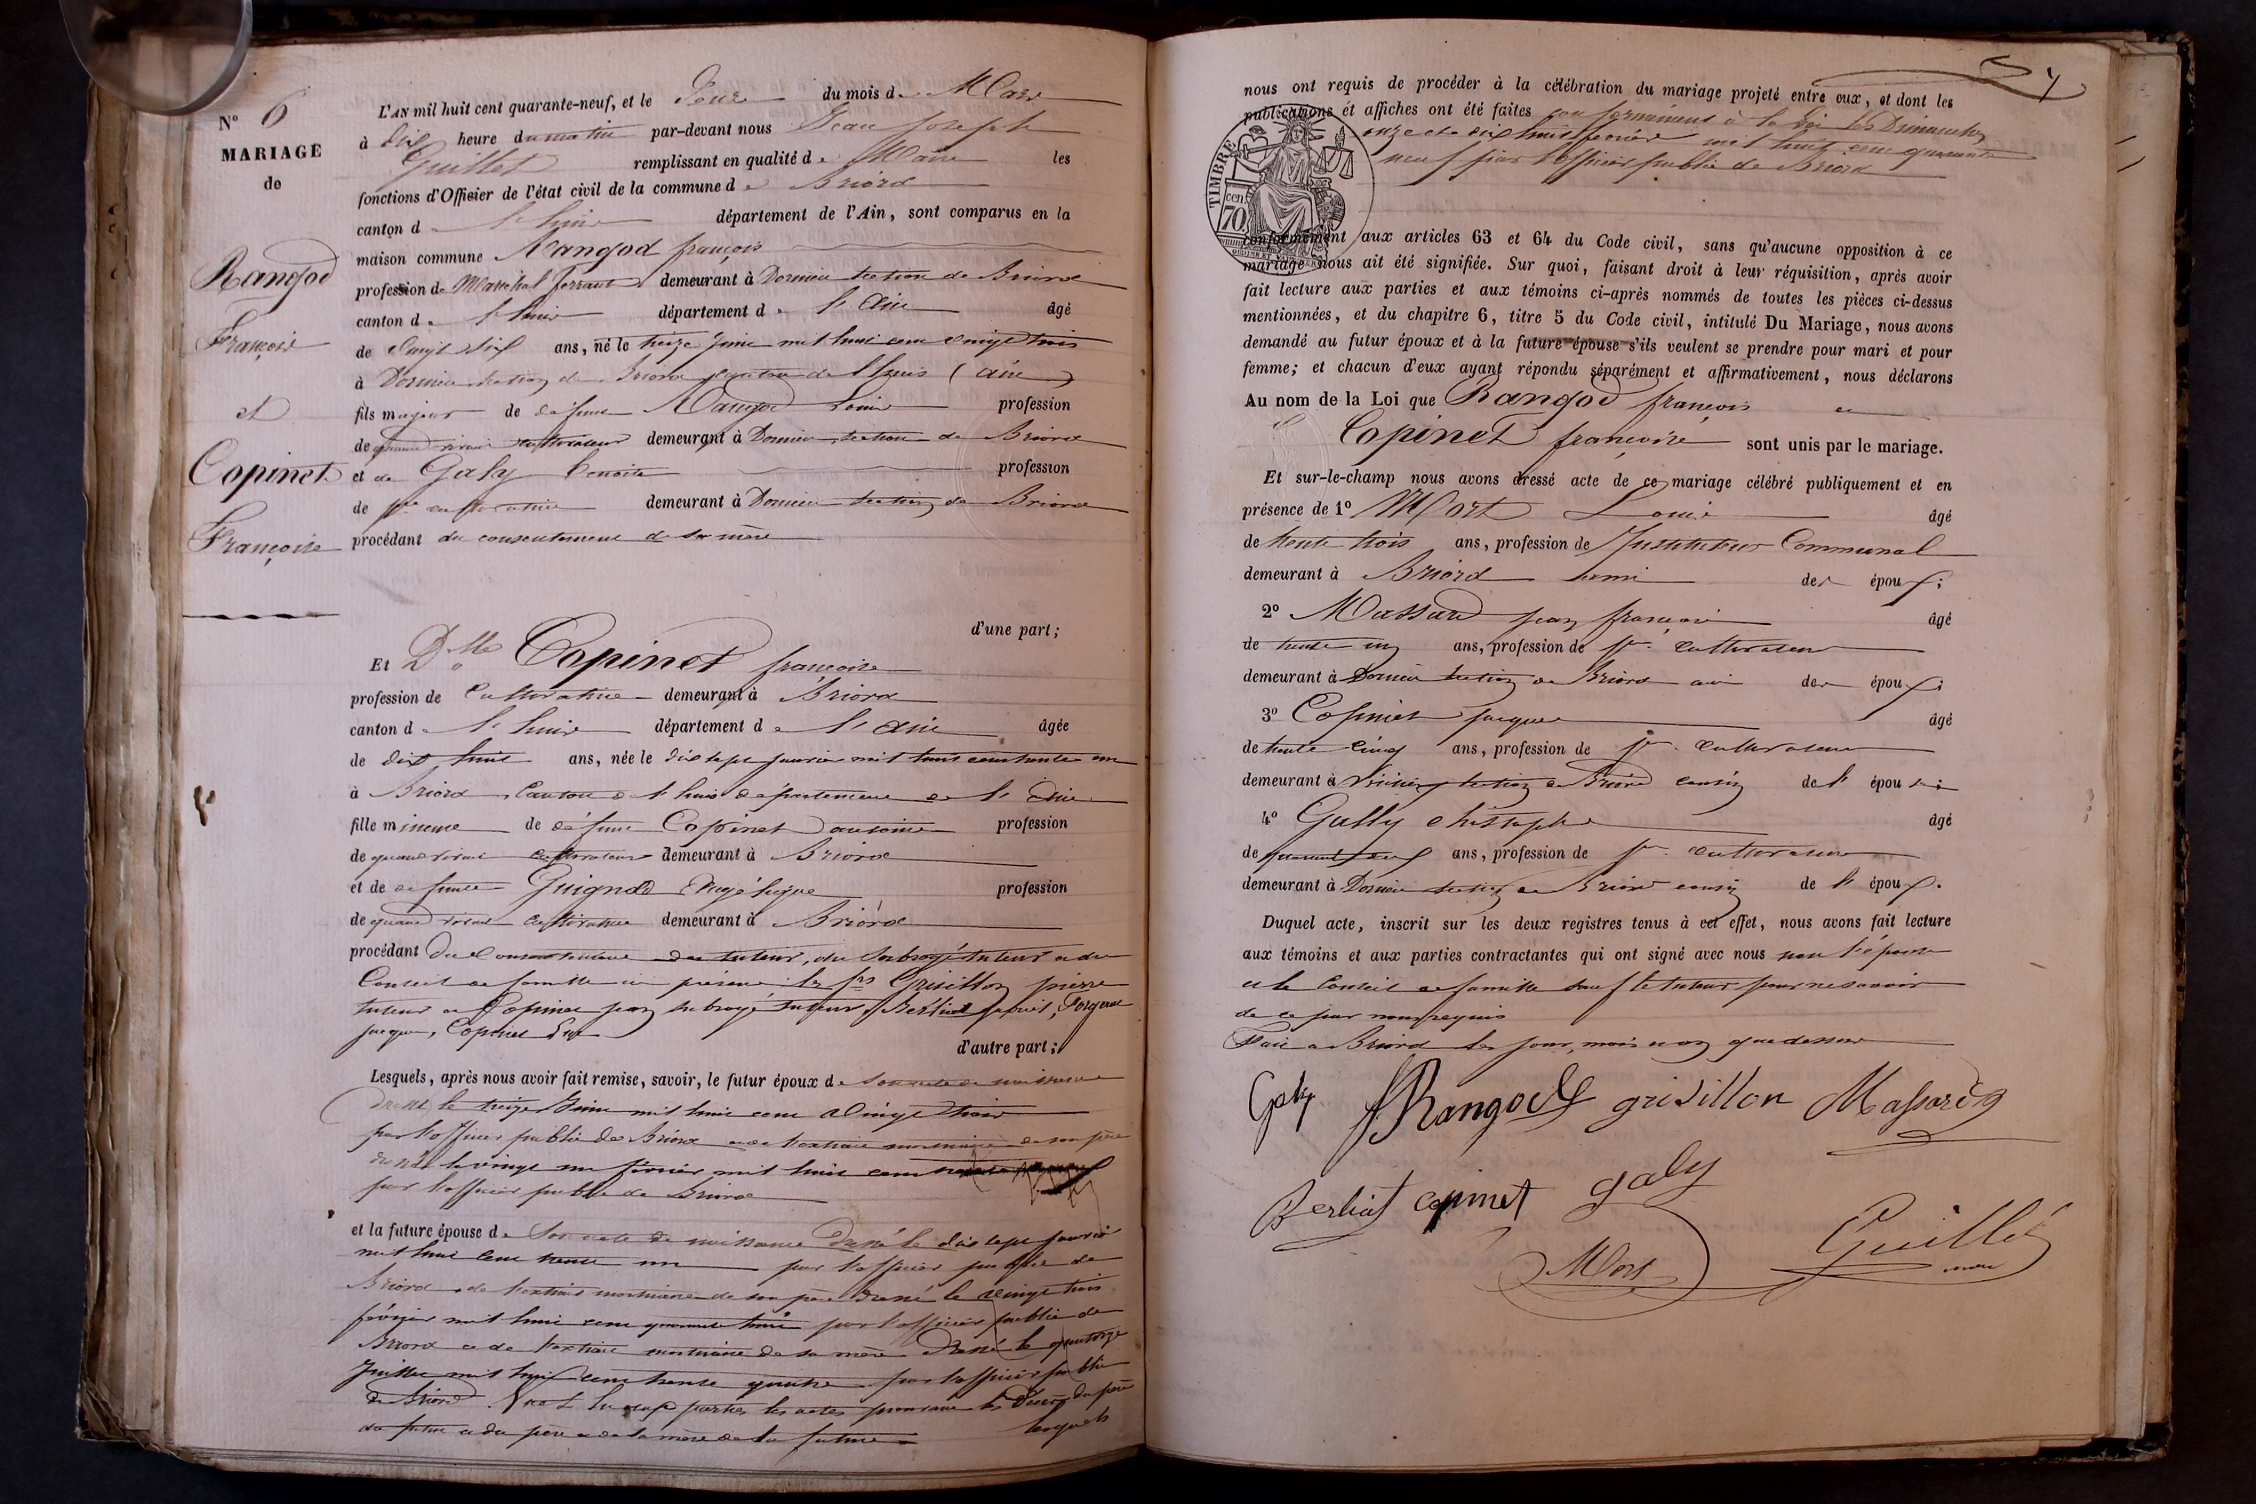 N° 6
MARIAGE
de
Rangod
François
et
Copinet
Françoise
L'AN mil huit cent quarante-neuf, et le du mois de Mars
à dix heure du matin par-devant nous Jean Joseph
Guillet remplissant en qualité de Maire les
fonctions d'Officier de l'état civil de la commune de Briord
canton de Lhuis département de l'Ain, sont comparus en la
maison commune Rangod françois
profession de Maréchal ferrant demeurant à Dornieu section de Briord
canton de Lhuis département de l'Ain âgé
de vingt six ans, né le treize Juin mil huit cent vingt trois
à Dornieu section de Briord canton de Lhuis (ain)
fils majeur de défunt Rangod Louis profession
de quand vivait cultivateur demeurant à Dornieu section de Briord
et de Galy Benoite profession
de cultivatrice demeurant à Dornieu section de Briord
procédant du consentement de sa mère
d'une part;
Et Dlle Copinet françoise
profession de Cultivatrice demeurant à Briord
canton de Lhuis département de l'Ain âgée
de dix huit ans, née le dix sept janvier mil huit cent trente un
à Briord Canton de Lhuis département de l'Ain
fille mineure de défunt Copinet antoine profession
de quand vivait cultivateur demeurant à Briord
et de defunte Guignod Angélique profession
de quand vivait cultivatrice demeurant à Briord
procédant du Consentement des tuteur, du Subrogé tuteur et du
Conseil de famille ici présent les Grisillon pierre
tuteur et Copinet jean subrogé tuteur, Berliat
jacque, Copinet
d'autre part;
Lesquels, après nous avoir fait remise, savoir, le futur époux de Son acte de naissance
Dressé le treize Juin mil huit cent vingt trois
par l'officier public de Briord et de l'extrait mortuaire de son père
dressé le vingt un février mil huit cent
par l'officier public de Briord
et la future épouse de Son acte de naissance Dressé le dix sept janvier
mil huit cent trente un par l'officier public de
Briord, de l'extrait mortuaire de son père Dressé le vingt trois
février mil huit cent quarante huit par l'officier public de
Briord et de l'extrait mortuaire de sa mère Dressé le quatorze
Juillet mil huit cent trente quatre par l'officier public
de Briord les actes prouvant les Décès du père
du futur et du père et de la mère de la future lesquels
nous ont requis de procéder à la célébration du mariage projeté entre eux, et dont les
publications et affiches ont été faites conformément à la loi les Dimanches
onze et dix huit février mil huit cent quarante
neuf par l'officier public de Briord
TIMBRE
cen.
70
conformément aux articles 63 et 64 du Code civil, sans qu'aucune opposition à ce
mariage nous ait été signifiée. Sur quoi, faisant droit à leur réquisition, après avoir
fait lecture aux parties et aux témoins ci-après nommés de toutes les pièces ci-dessus
mentionnées, et du chapitre 6, titre 5 du Code civil, intitulé Du Mariage, nous avons
demandé au futur époux et à la future épouse s'ils veulent se prendre pour mari et pour
femme; et chacun d'eux ayant répondu séparément et affirmativement, nous déclarons
Au nom de la Loi que Rangod françois et
Copinet françoise sont unis par le mariage.
Et sur-le-champ nous avons dressé acte de ce mariage célébré publiquement et en
présence de 1° Mort Louis âgé
de trente trois ans, profession de Instituteur Communal
demeurant à Briord ami des époux;
2° Massard jean françois âgé
de trente cinq ans, profession de Cultivateur
demeurant à Dornieu section de Briord ami des époux;
3° Copinet jacque âgé
de trente cinq ans, profession de Cultivateur
demeurant à section de Briord cousin de l'épouse;
4° Gally christophe âgé
de ans, profession de Cultivateur
demeurant à Dornieu section de Briord cousin de l'époux.
Duquel acte, inscrit sur les deux registres tenus à cet effet, nous avons fait lecture
aux témoins et aux parties contractantes qui ont signé avec nous non l'épouse
et le Conseil de famille sauf le tuteur pour ne savoir
de ce par nous requis
Fait à Briord les jour, mois et an que dessus
Galy FRangod grisillon Massard
Berliat copinet galy
Mort Guillet